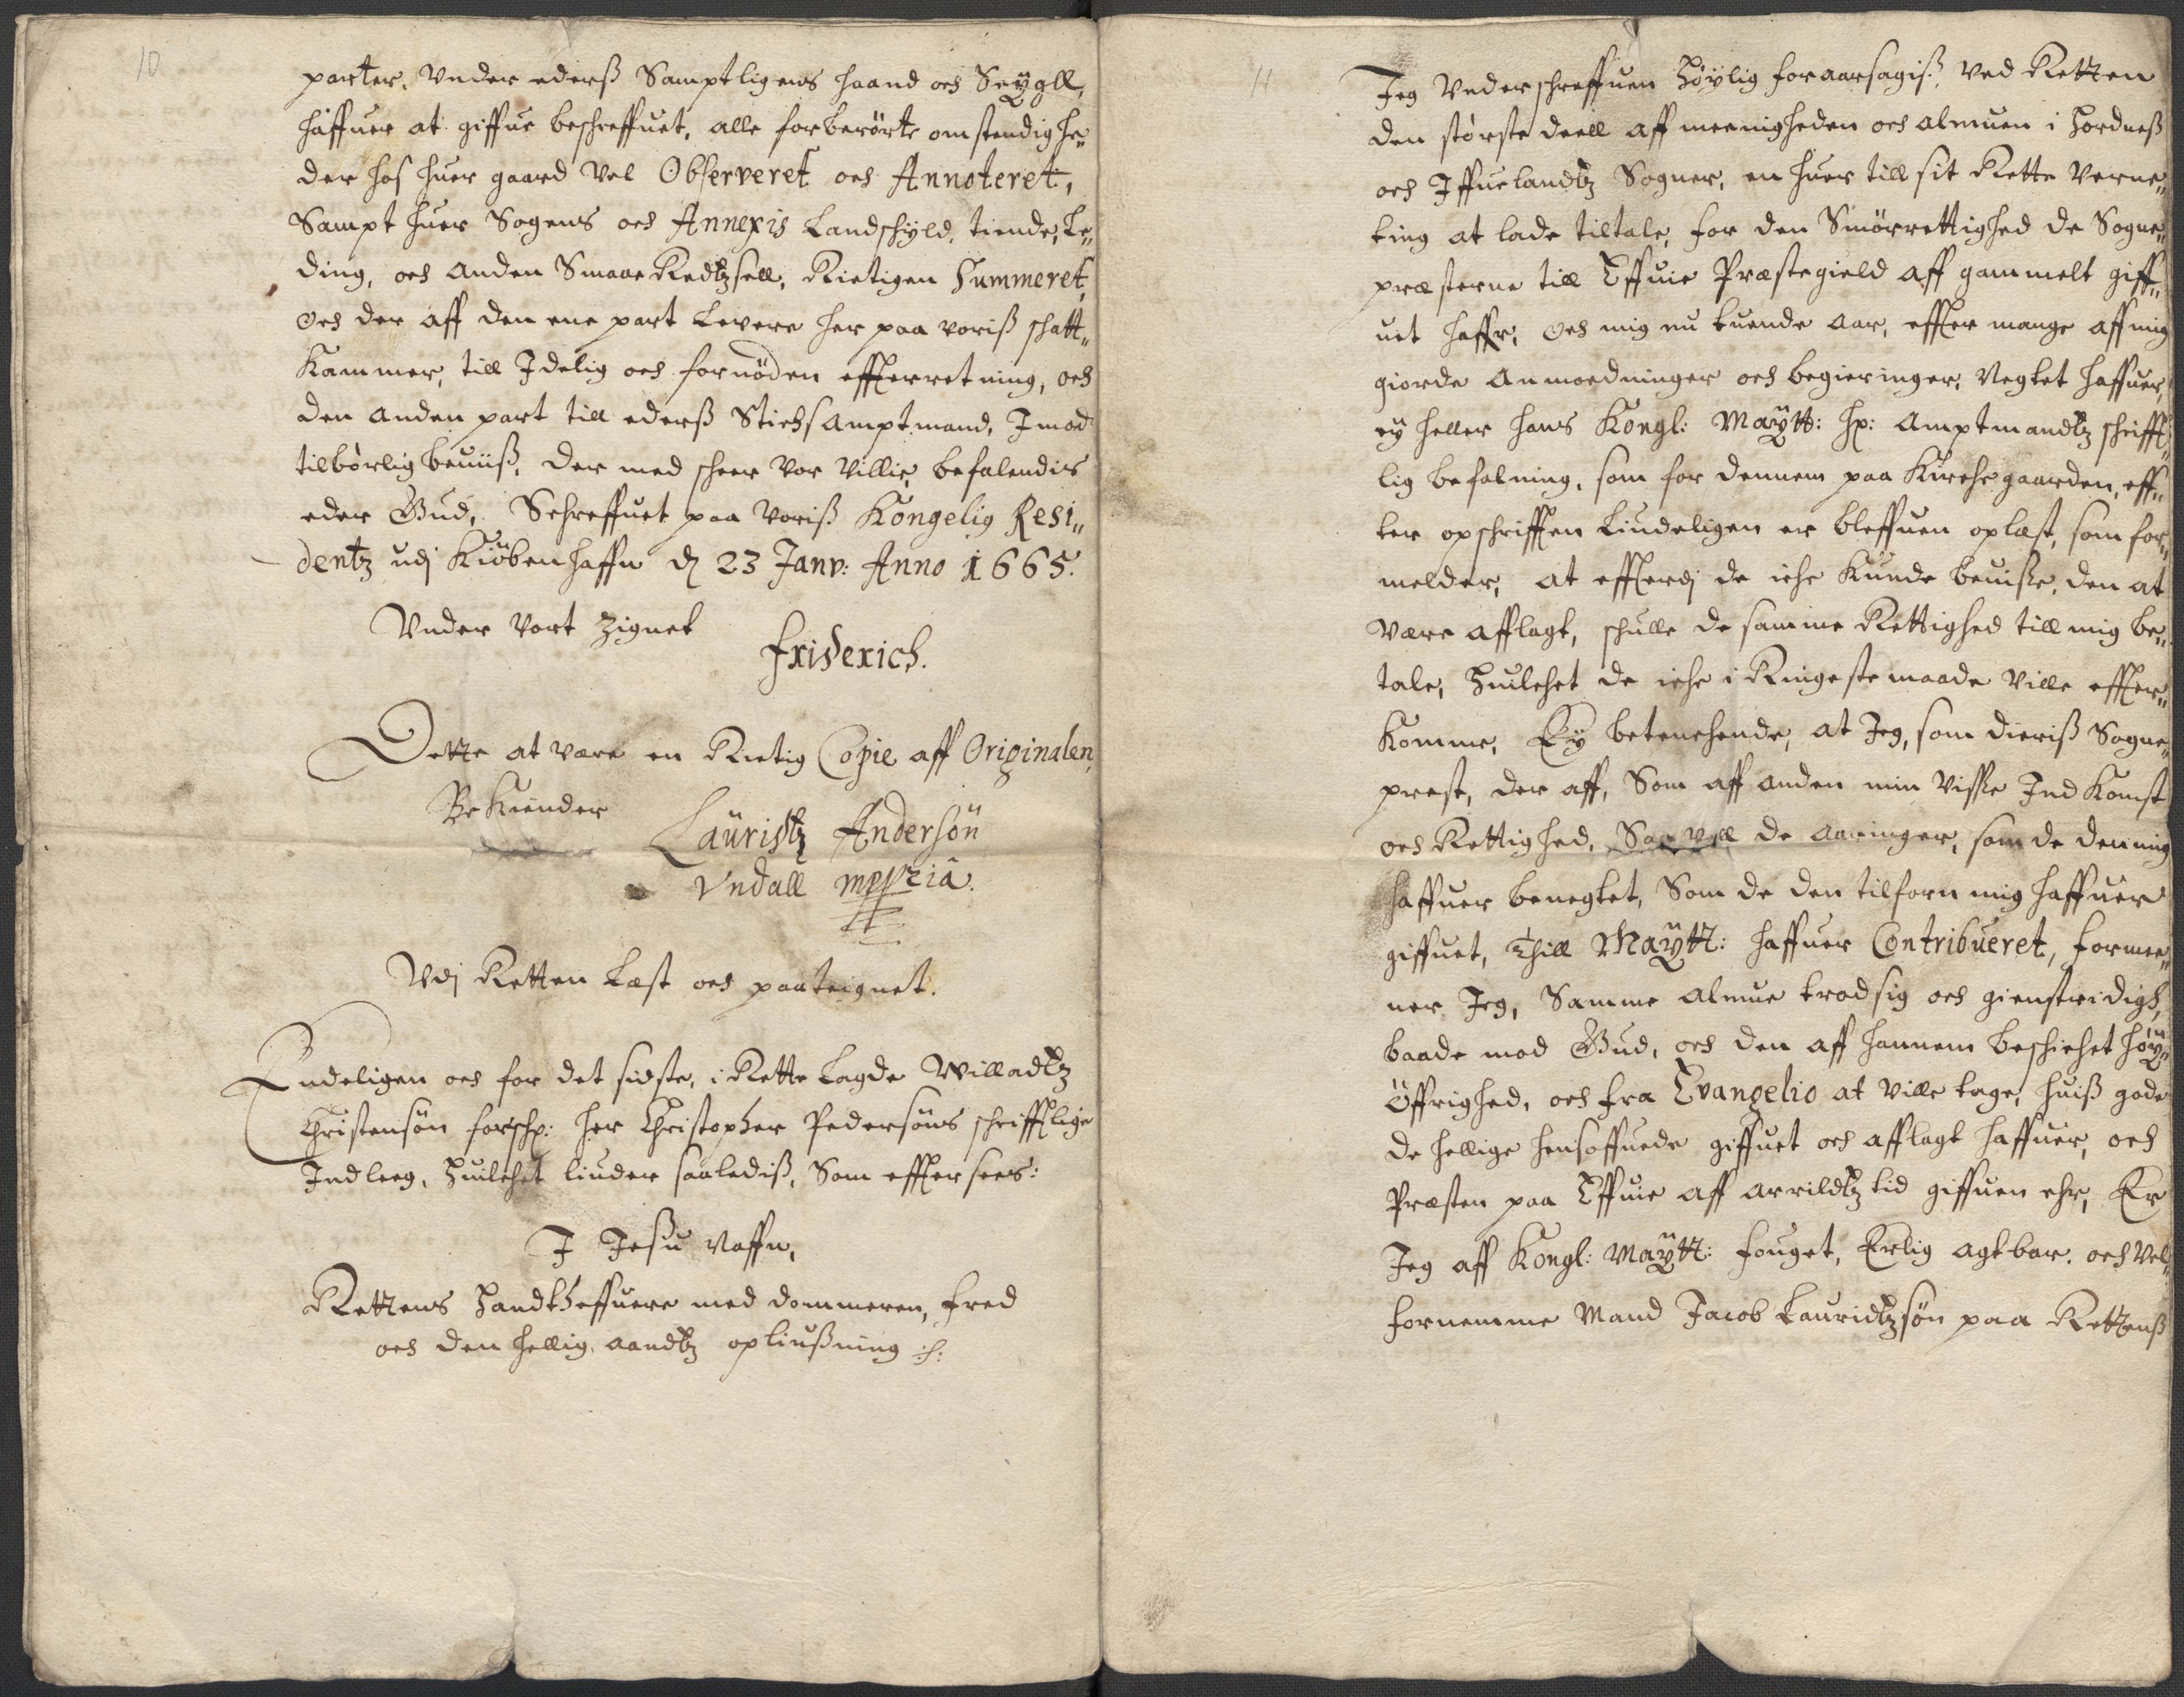 10
parter, Vnder ederß Samptligens haand och Seÿgll,
haffuer at giffue beschreffuet, alle forberørte omstendighe„
der hos huer gaard vel Observeret och Annoteret,
Sampt huer Sogens och Annexis Landschÿld, tiende, Le„
ding, och anden Smaae Redtzsell, Rictigen Summeret,
och der aff den ene part Levere her paa voriß schatt„
Kammer, till Idelig och fornøden effterretning, och
den anden part till ederß Stichsamptmand, Imod
tilbørlig beuiiß, der med scheer vor villie, befalendis
eder Gud, Schreffuet paa voriß Kongelig Resi„
dentz udj Kiöbenhaffn dj 23 Janv: Anno 1665.
Vnder vort Zignet
Friderich.
Dette at være en Rictig Copie aff Originalen,
Bekiender
Lauristz Andersøn
Vndall mppria
Vdj Retten Læst och paateignet.
Endeligen och for det sidste, i Rette Lagde Willadtz
Christensøn forschr: her Christopher Pedersøns schrifftlige
Indleeg, Huilchet liuder saalediß, Som efftersees:
I Jesu Naffn,
Rettens Handtheffuere med dommeren, Fred
och den hellig aandtz opliußning :/:
11
Jeg Vnderschreffuen Høÿlig foraarsagiß, ved Retten
den største deell aff meenigheden och almuen i Hordneß
och Iffuelandtz Sogner, en huer till sit Rette Verne„
ting at lade tiltale, for den Smørrettighed de Sogne„
præsterne till Effuie Præstegield aff gammelt giff„
uet haffr, och mig nu tuende aar, effter mange aff mig
giorde anmoedninger och begieringer, Negtet haffuer,
eÿ heller hans Kongl: Maÿtt: Hr: Amptmandtz schrifft„
lig befalning, som for dennem paa Kirchegaarden, eff„
ter opschrifften Liudeligen er bleffuen oplæst, som for„
melder, at effterdj de iche Kunde beuiße, den at
være afflagt, schulle de samme Rettighed till mig be„
tale, Huilchet de iche i Ringeste maade ville effter„
Komme, Eÿ betenchende, at Jeg, som dieriß Sogne„
prest, der aff, Som aff anden min visse Ind Komst
och Rettighed, Saa vell de aaringer, som de den mig
haffuer benegtet, Som de den tilforn mig haffuer
giffuet, Thill Maÿtt: haffuer Contribueret, formee„
ner Jeg, Samme almue trodsig och gienstridigh,
baade mod Gud, och den aff hannem beschichet høÿ„
Øffrighed, och fra Evangelio at ville tage, huiß gode
de hellige hensoffuede giffuet och afflagt haffuer, och
Præsten paa Effuie aff arrildtz tid giffuen ehr, Er
Jeg aff Kongl: Maÿtt: fouget, Erlig agtbar, och vel„
fornemme Mand Jacob Lauridtzsøn paa Rettenß